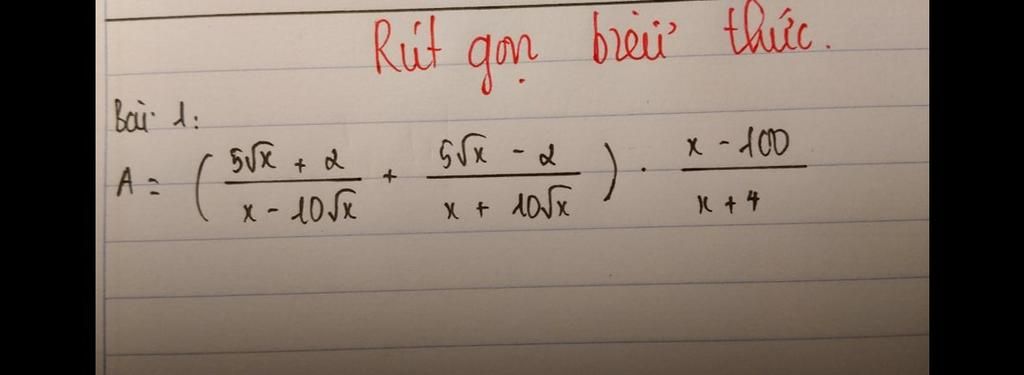 Rút gọn biểu thức.
Bài 1:
A = ( (5√x + 2)/(x - 10√x) + (5√x - 2)/(x + 10√x) ) · (x - 100)/(x + 4)